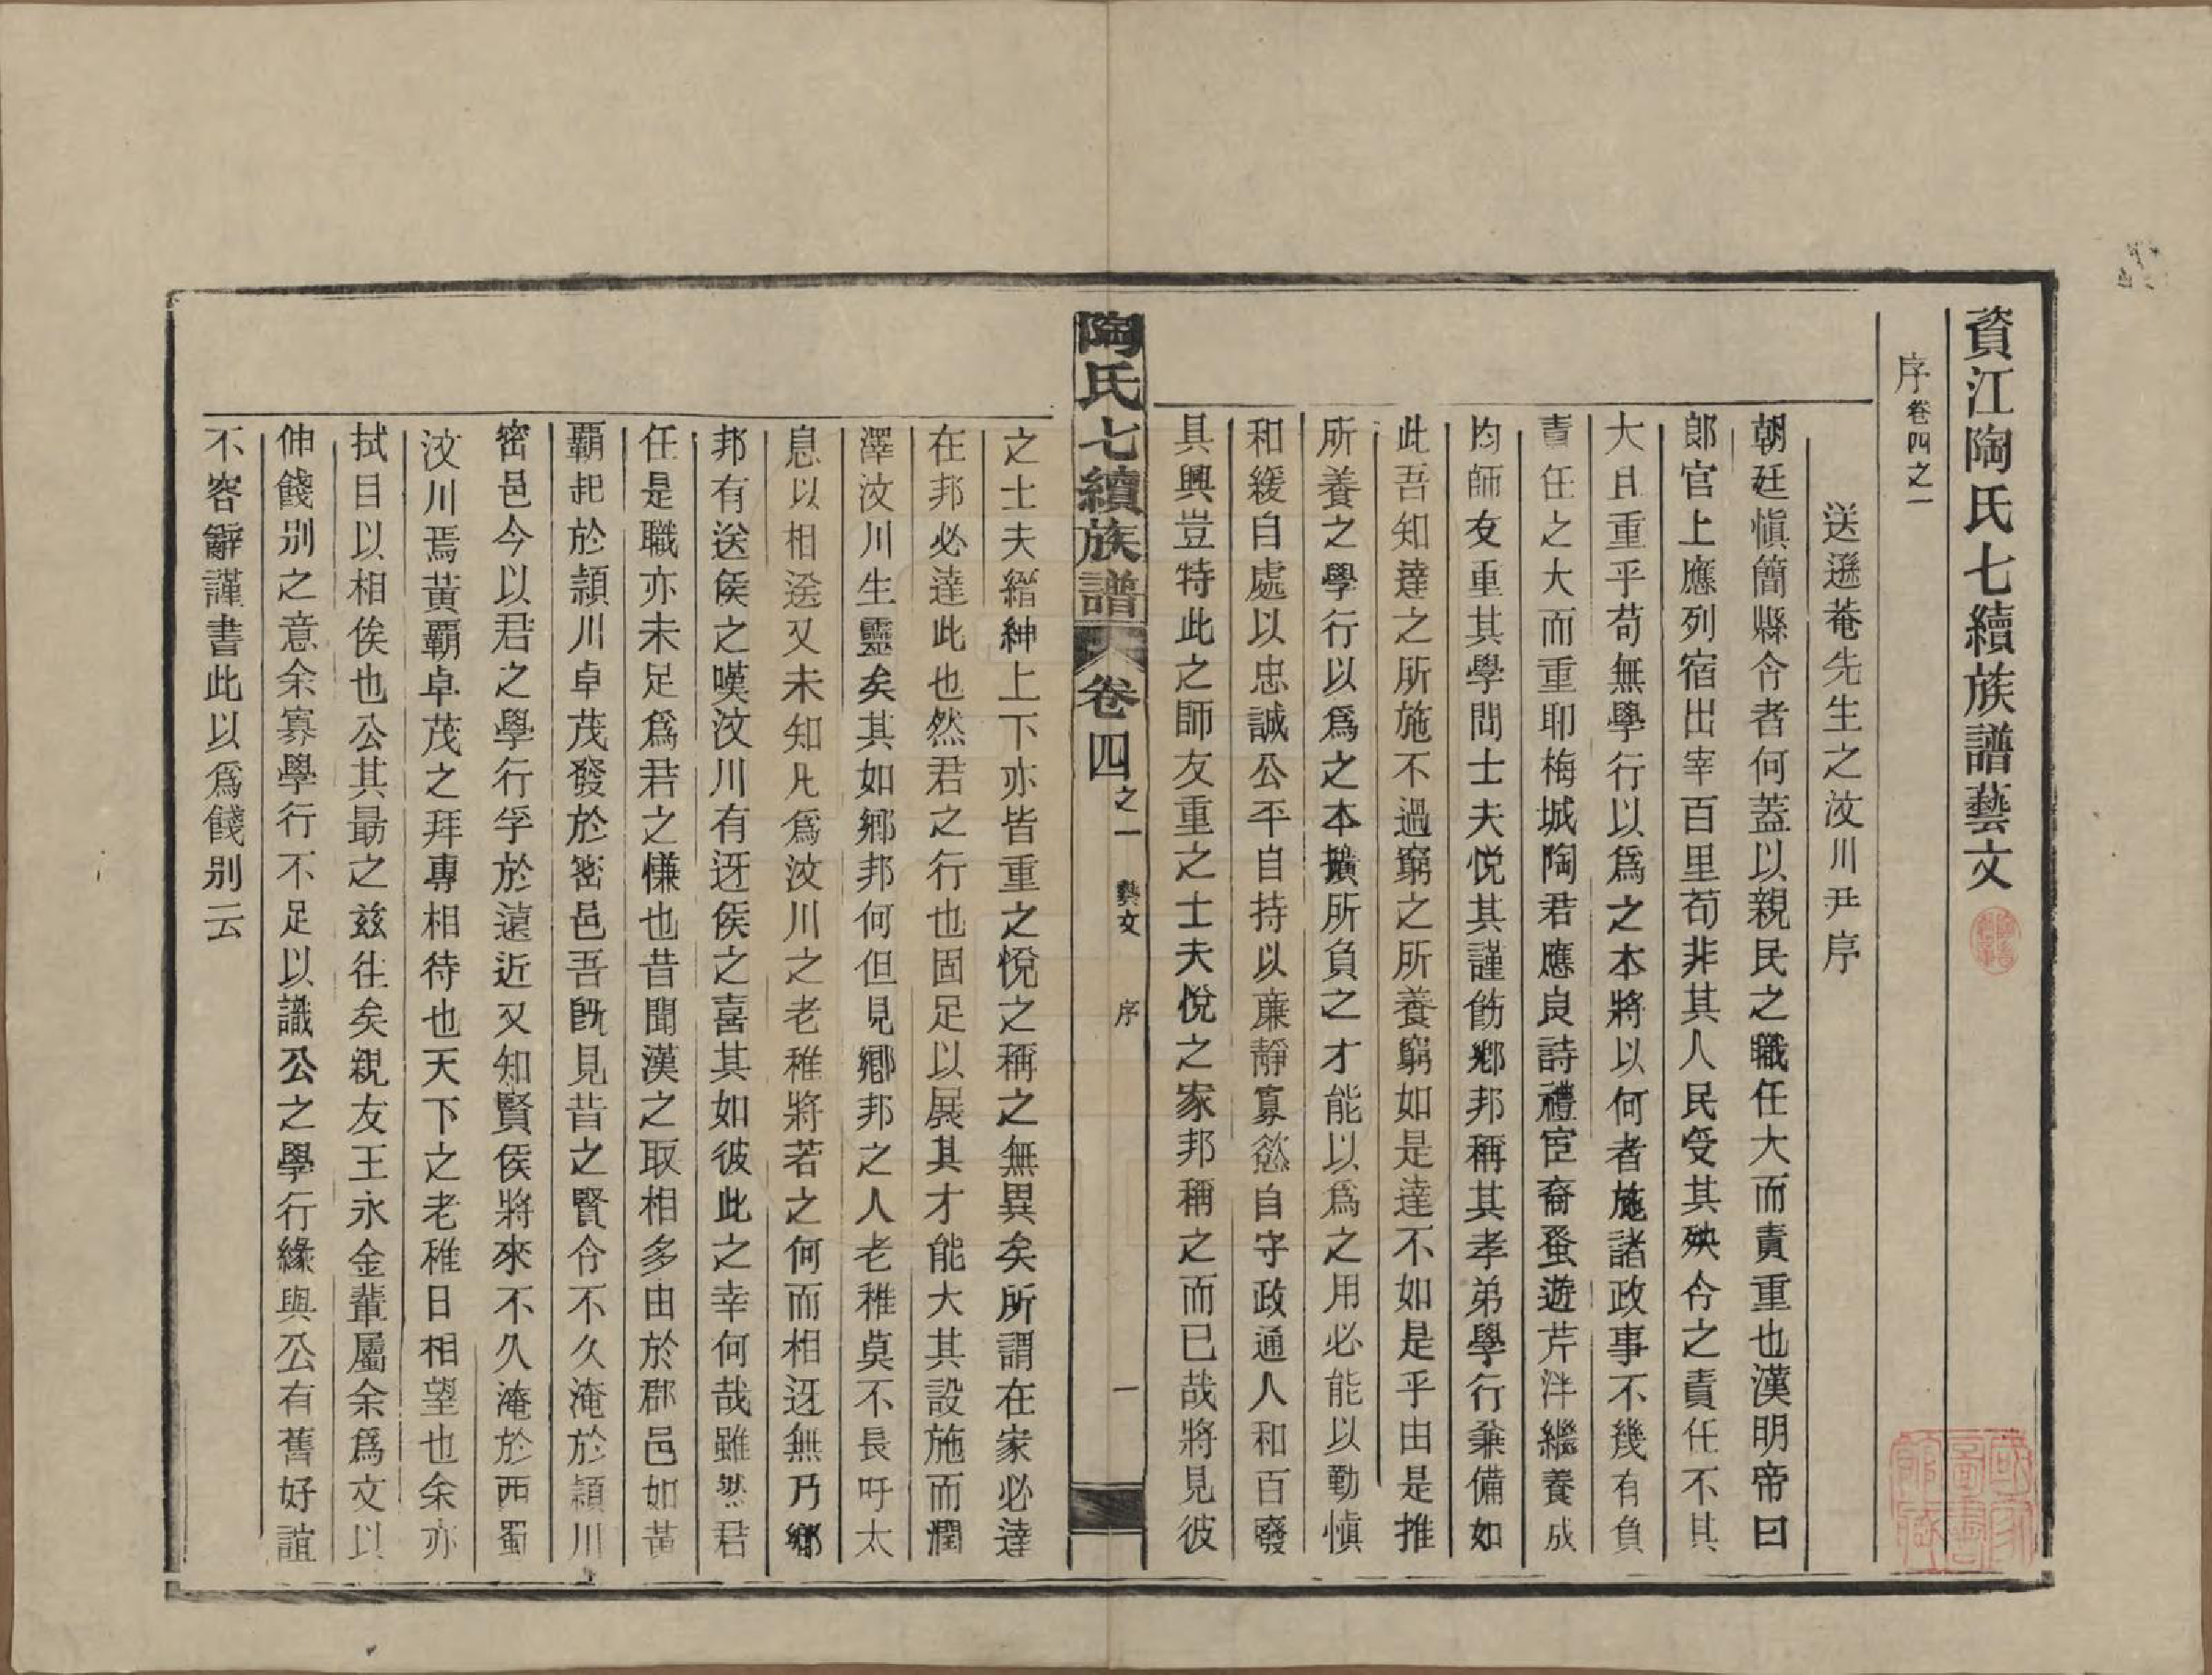 資江陶氏七續族譜藝文
序卷四之一
送遜菴先生之汶川尹序
朝廷愼簡縣令者何蓋以親民之職任大而責重也漢明帝曰
郎官上應列宿出宰百里苟非其人民受其殃令之責任不其
大且重乎苟無學行以爲之本將以何者施諸政事不幾有負
責任之大而重耶梅城陶君應良詩禮宦裔蚤遊芹泮繼養成
均師友重其學問士夫悅其謹飭鄕邦稱其孝弟學行兼備如
此吾知達之所施不過窮之所養窮如是達不如是乎由是推
所養之學行以爲之本擴所負之才能以爲之用必能以勤愼
和緩自處以忠誠公平自持以廉靜寡慾自守政通人和百廢
具興豈特此之師友重之士夫悅之家邦稱之而已哉將見彼
陶氏七續族譜
卷四之一
藝文
序
一
之士夫縉紳上下亦皆重之悅之稱之無異矣所謂在家必達
在邦必達此也然君之行也固足以展其才能大其設施而潤
澤汶川生靈矣其如鄕邦何但見鄕邦之人老稚莫不長吁太
息以相送又未知凡爲汶川之老稚將若之何而相迓無乃鄕
邦有送侯之嘆汶川有迓侯之喜其如彼此之幸何哉雖然君
任是職亦未足爲君之慊也昔聞漢之取相多由於郡邑如黃
霸起於潁川卓茂發於密邑吾旣見昔之賢令不久淹於潁川
密邑今以君之學行孚於遠近又知賢侯將來不久淹於西蜀
汶川焉黃霸卓茂之拜專相待也天下之老稚日相望也余亦
拭目以相俟也公其勗之兹往矣親友王永金輩屬余爲文以
伸餞别之意余寡學行不足以識公之學行緣與公有舊好誼
不容辭謹書此以爲餞别云
國家圖書館藏